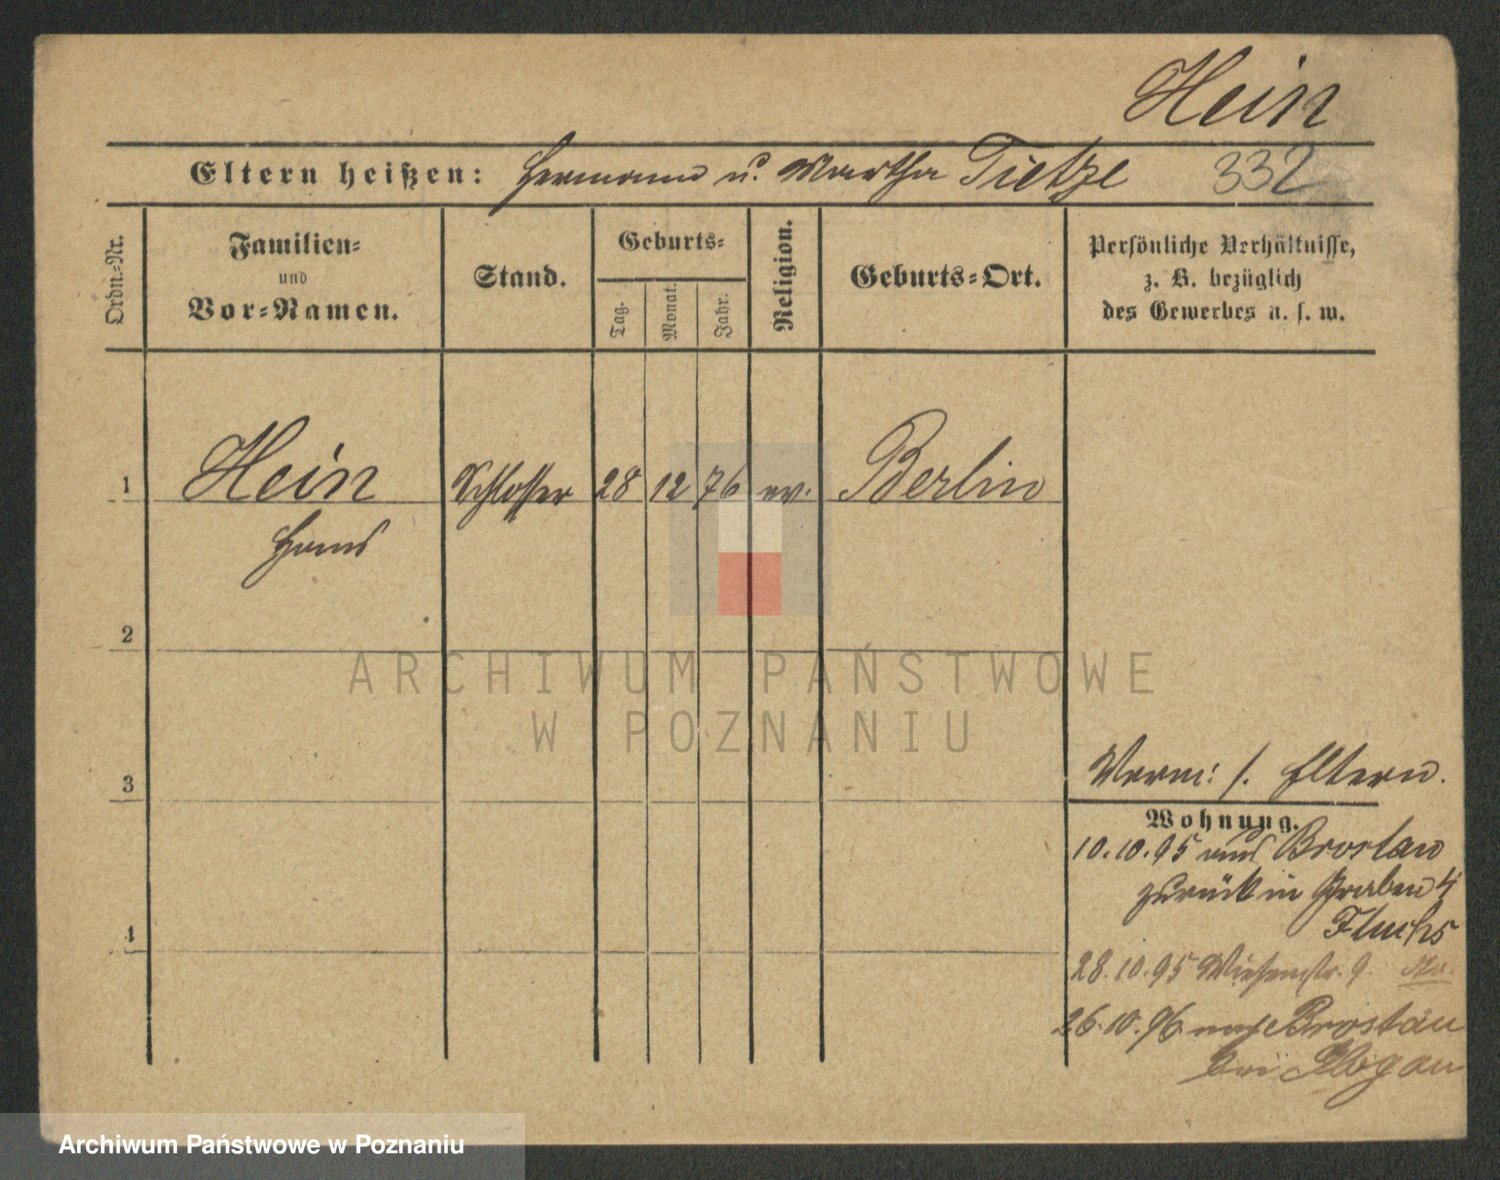 Hein
Eltern heißen: Hermann u. Martha Tietze 332
Ordn.-Nr.
Familien-
und
Vor-Namen.
Stand.
Geburts-
Tag.
Monat.
Jahr.
Religion.
Geburts-Ort.
Persönliche Verhältnisse,
z. B. bezüglich
des Gewerbes u. s. w.
1 Hein Schlosser 28 12 76 ev. Berlin
Hans
2
ARCHIWUM PAŃSTWOWE
W POZNANIU
3
Verm: s. Eltern.
Wohnung.
10.10.95 aus Brostau
zurück in Graben 4
Fluchs
4
28.10.95 Wiesenstr. 9.
26.10.96 nach Brostau
bei Glogau
Archiwum Państwowe w Poznaniu